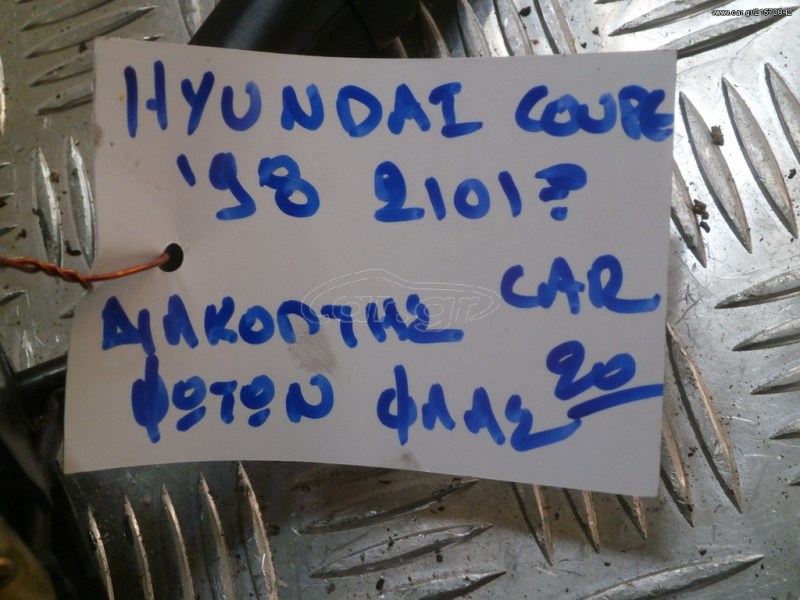 www.car.gr/21570842
HYUNDAI COUPE
'98 2101?
CAR
ΔΙΑΚΟΠΤΗΣ
ΦΩΤΩΝ ΦΛΑΣ 20
car.gr